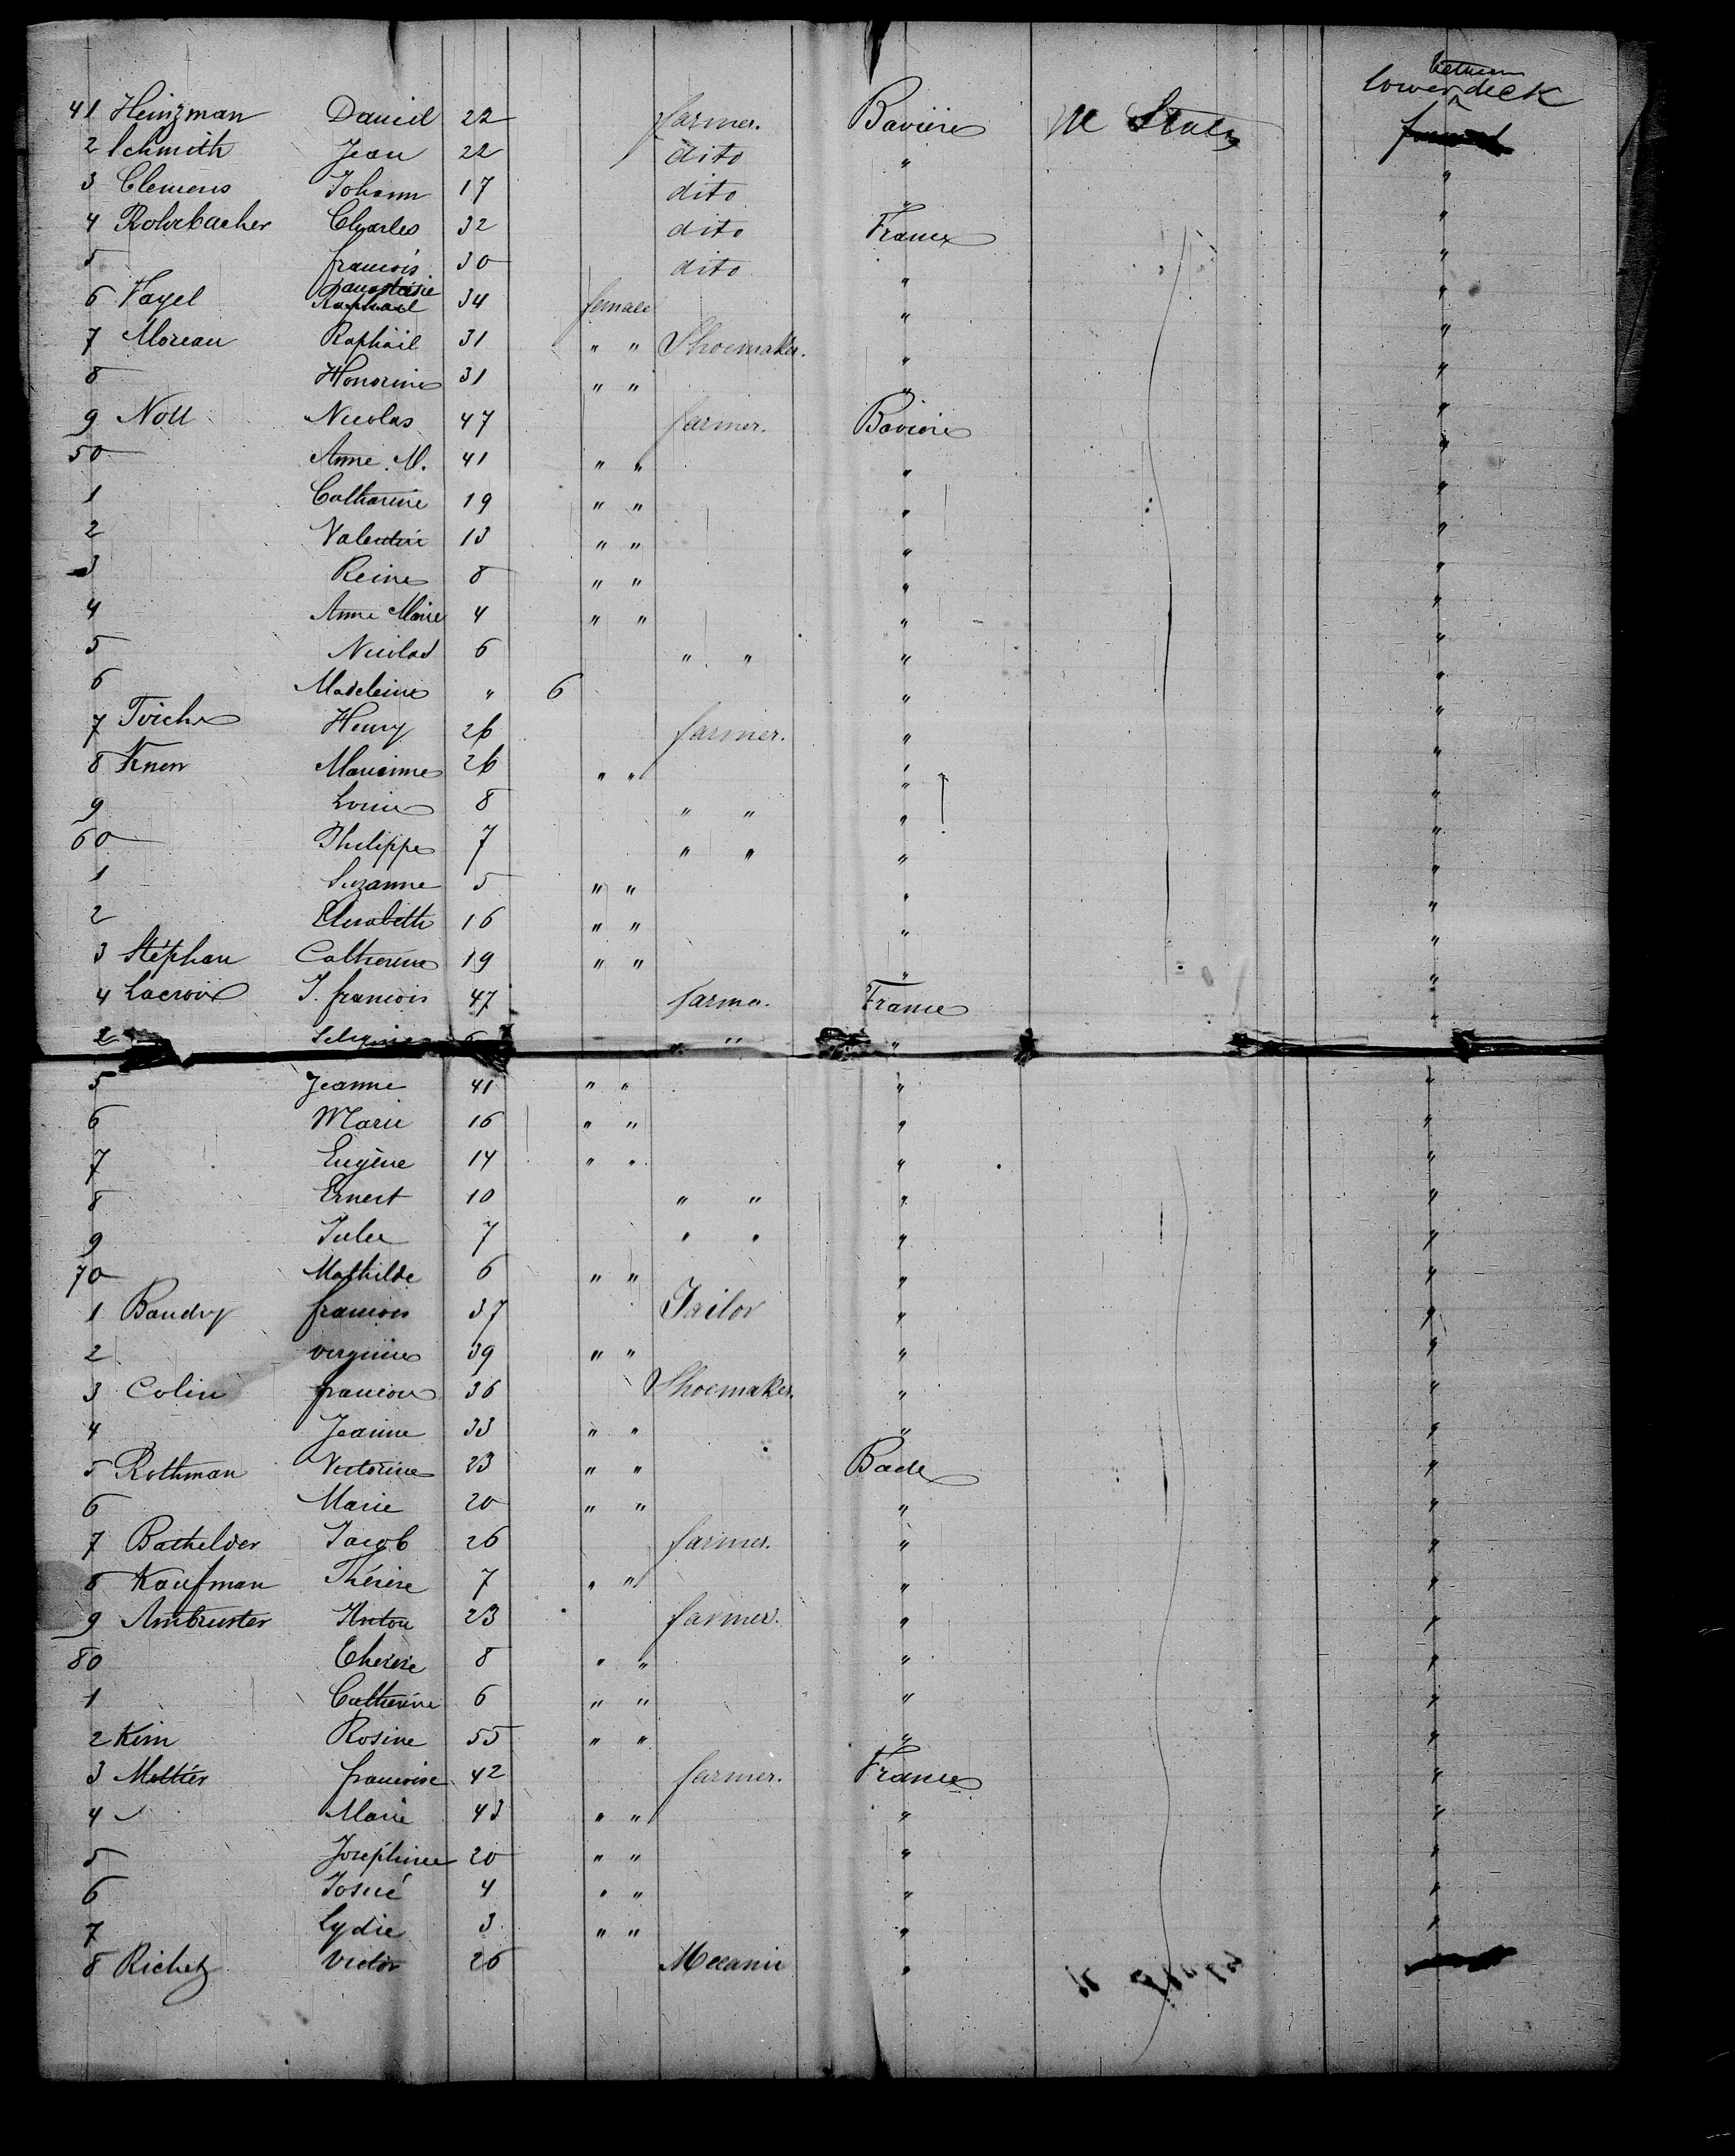 between
lower deck
41 Heinzman Daniel 22 farmer. Baviere U States
2 Schmith Jean 22 dito "
3 Clemens Johann 17 dito "
4 Rohrbacher Charles 32 dito France "
5 francois 30 dito " "
6 34 female " "
7 Moreau Raphäil 31 " " Shoemaker. " "
8 Honorine 31 " " " "
9 Noll Nicolas 47 farmer. Baviere "
50 Anne. M. 41 " " " "
1 Catharine 19 " " " "
2 Valentin 13 " " " "
3 Reine 8 " " " "
4 Anne Marie 4 " " " "
5 Nicolas 6 " " " "
6 Madeleine " 6 " "
7 Henry 26 farmer. " "
8 26 " " " "
9 Louise 8 " " " "
60 Philippe 7 " " " "
1 Suzanne 5 " " " "
2 Elisabeth 16 " " " "
3 Stéphan Catherine 19 " " " "
4 Lacroix J. francois 47 farmer. France "
2 " " "
5 Jeanne 41 " " " "
6 Marie 16 " " " "
7 Eugène 14 " " " "
8 Ernest 10 " " " "
9 Jules 7 " " " "
70 Mathilde 6 " " " "
1 Baudry francois 37 Tailor " "
2 virginie 39 " " " "
3 Colin francois 36 Shoemaker. " "
4 Jeanne 33 " " " "
5 Rothman Victorine 23 " " Bade "
6 Marie 20 " " " "
7 Bathelder Jacob 26 farmer. " "
8 Kaufman Thérèse 7 " " " "
9 Ambruster Anton 23 farmer. " "
80 Therese 8 " " " "
1 Catherine 6 " " " "
2 Kim Rosine 55 " " " "
3 Mettier francoise 42 farmer. France "
4 Marie 43 " " " "
5 Josephine 20 " " " "
6 Josué 4 " " " "
7 Lydie 3 " " " "
8 Richet Victor 26 Mecanic "